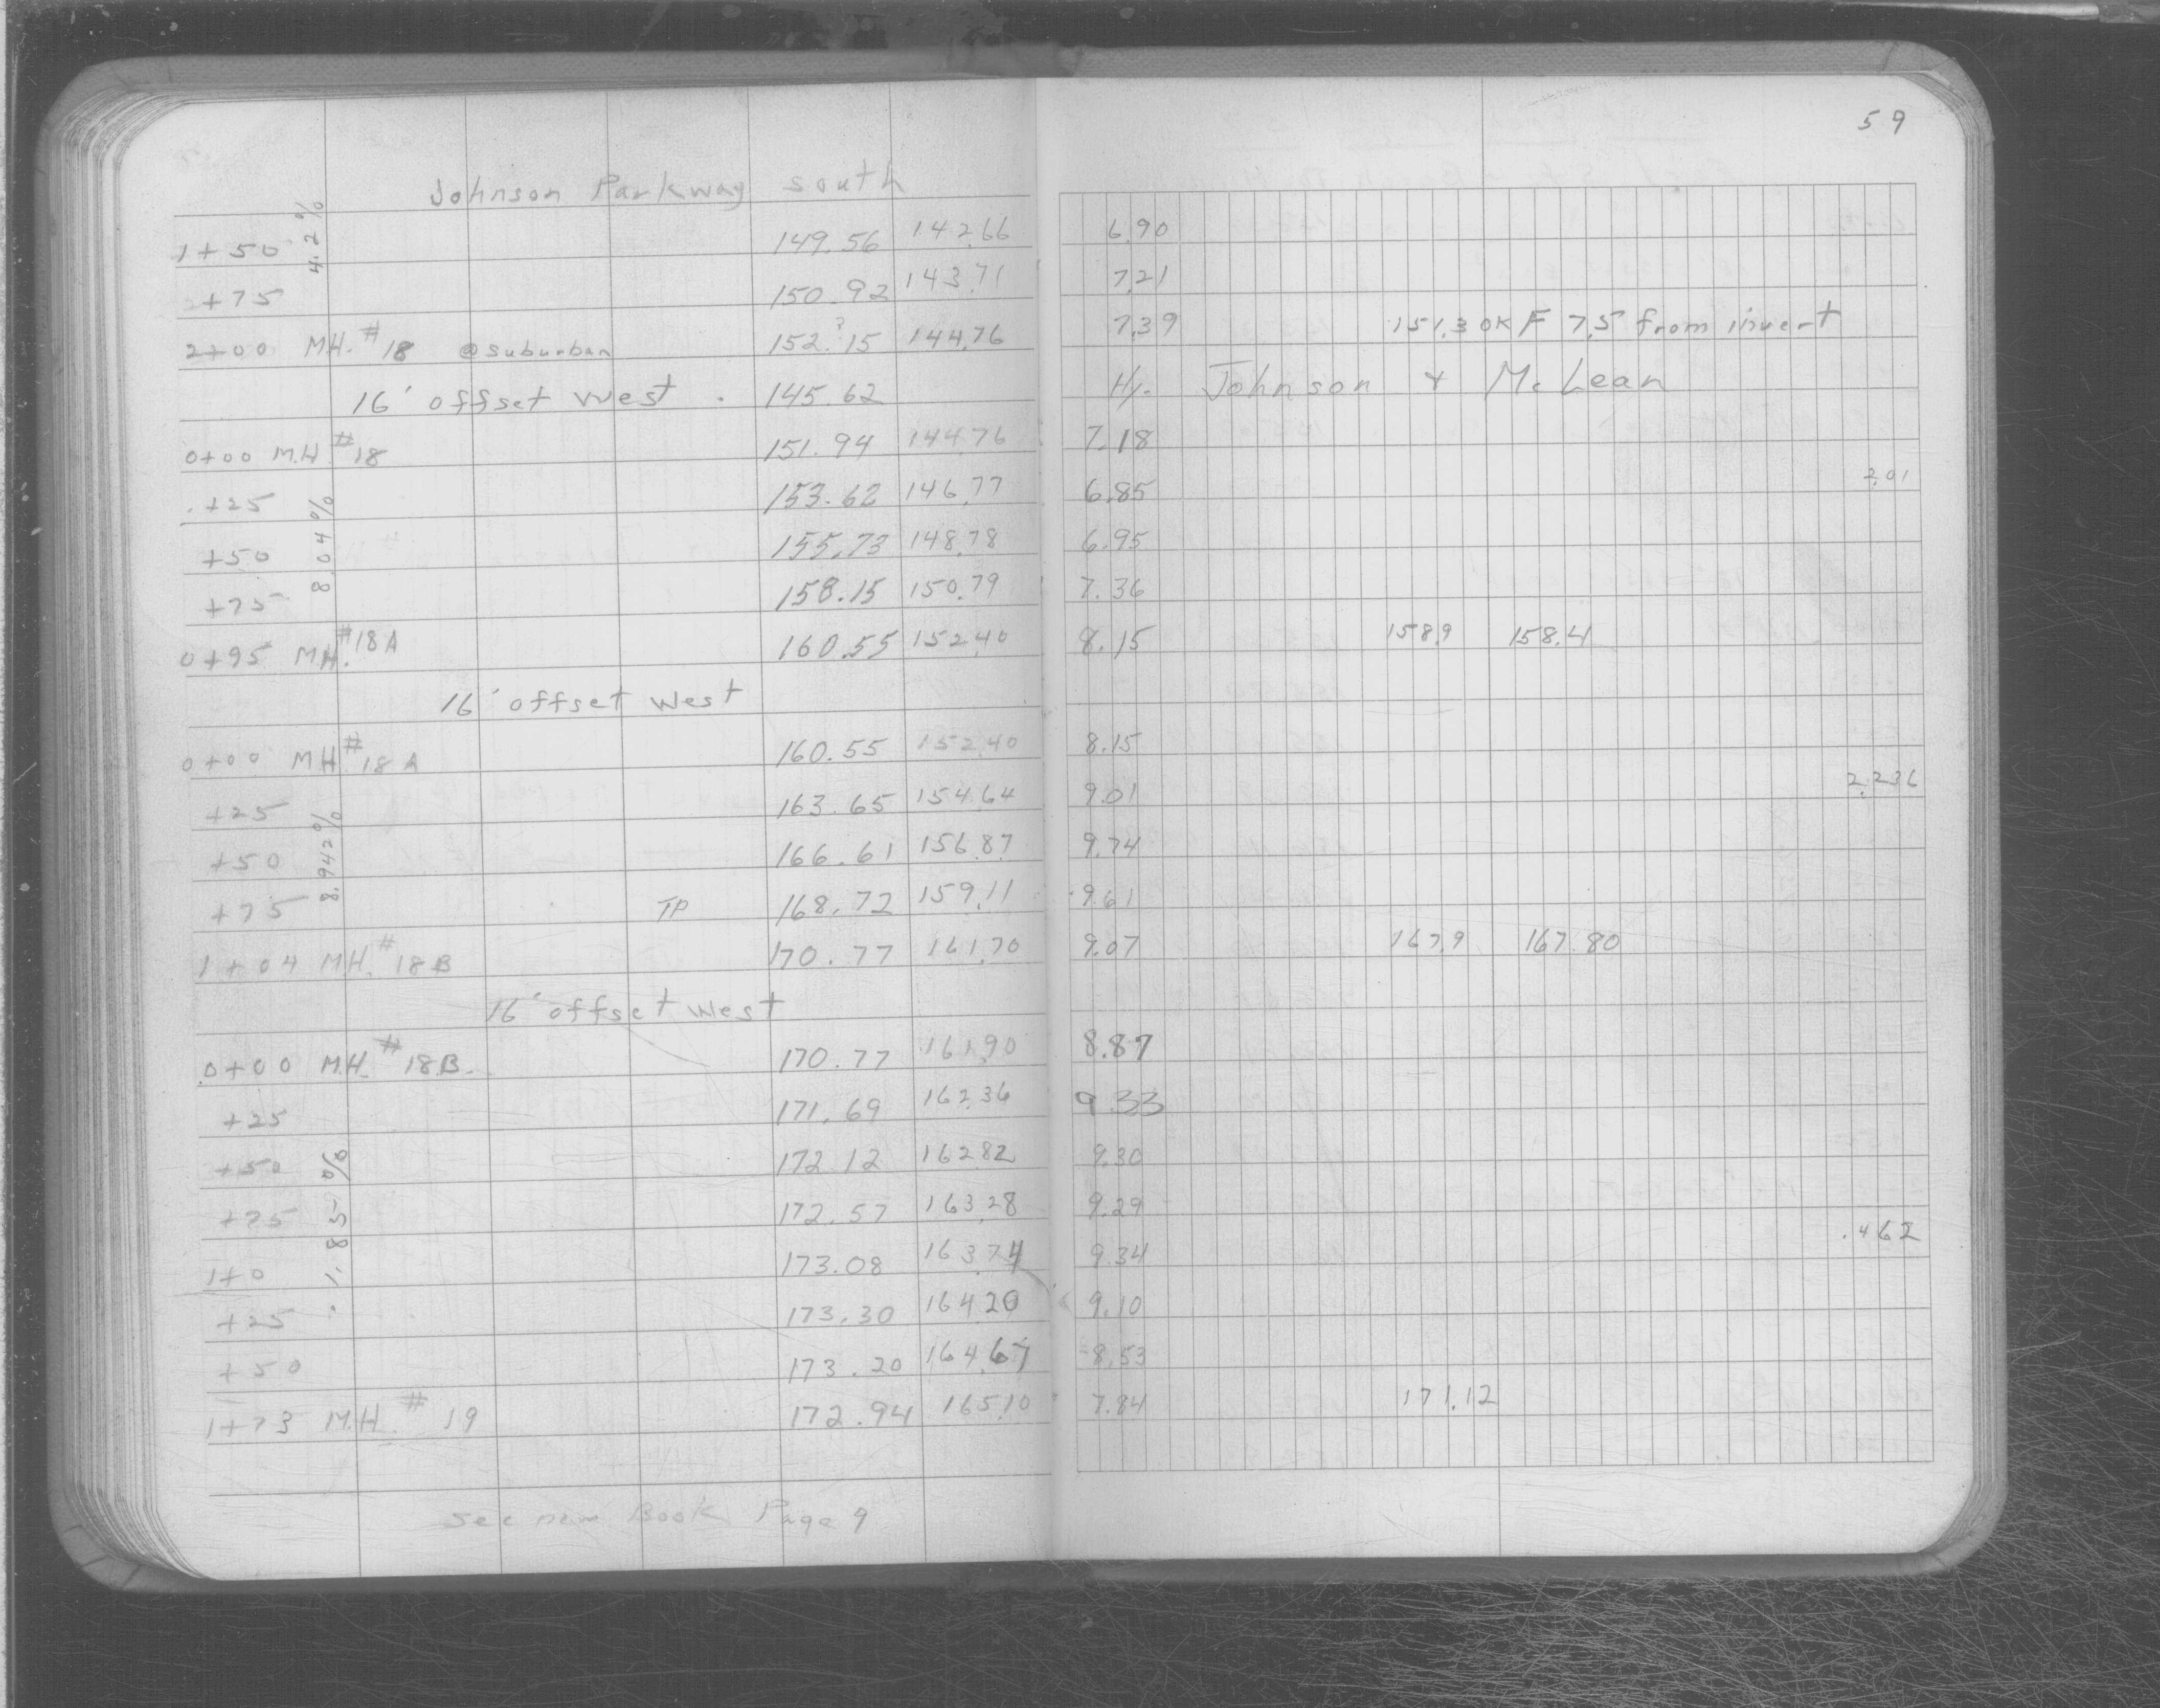 59
Johnson Parkway south
1+50 4.2% 149.56 142.66 6.90
+75 150.92 143.71 7.21
2+00 MH. #18 @suburban 152.?15 144.76 7.39 151.3 OK F 7.5 from invert
16' offset west. 145.62 Hy. Johnson & McLean
0+00 M.H. #18 151.94 144.76 7.18
+25 153.62 146.77 6.85 2.01
+50 8.04% 155.73 148.78 6.95
+75 158.15 150.79 7.36
0+95 MH. #18A 160.55 152.40 8.15 158.9 158.4
16' offset west
0+00 MH #18A 160.55 152.40 8.15
+25 163.65 154.64 9.01 2.236
+50 8.942% 166.61 156.87 9.74
+75 TP 168.72 159.11 9.61
1+04 MH. #18B 170.77 161.70 9.07 167.9 167.80
16' offset west
0+00 M.H. #18B. 170.77 161.90 8.87
+25 171.69 162.36 9.33
+50 172.12 162.82 9.30
+75 1.85% 172.57 163.28 9.29
1+0 173.08 163.74 9.34 .462
+25 173.30 164.20 9.10
+50 173.20 164.67 8.53
1+73 M.H. #19 172.94 165.10 7.84 171.12
see new Book Page 9